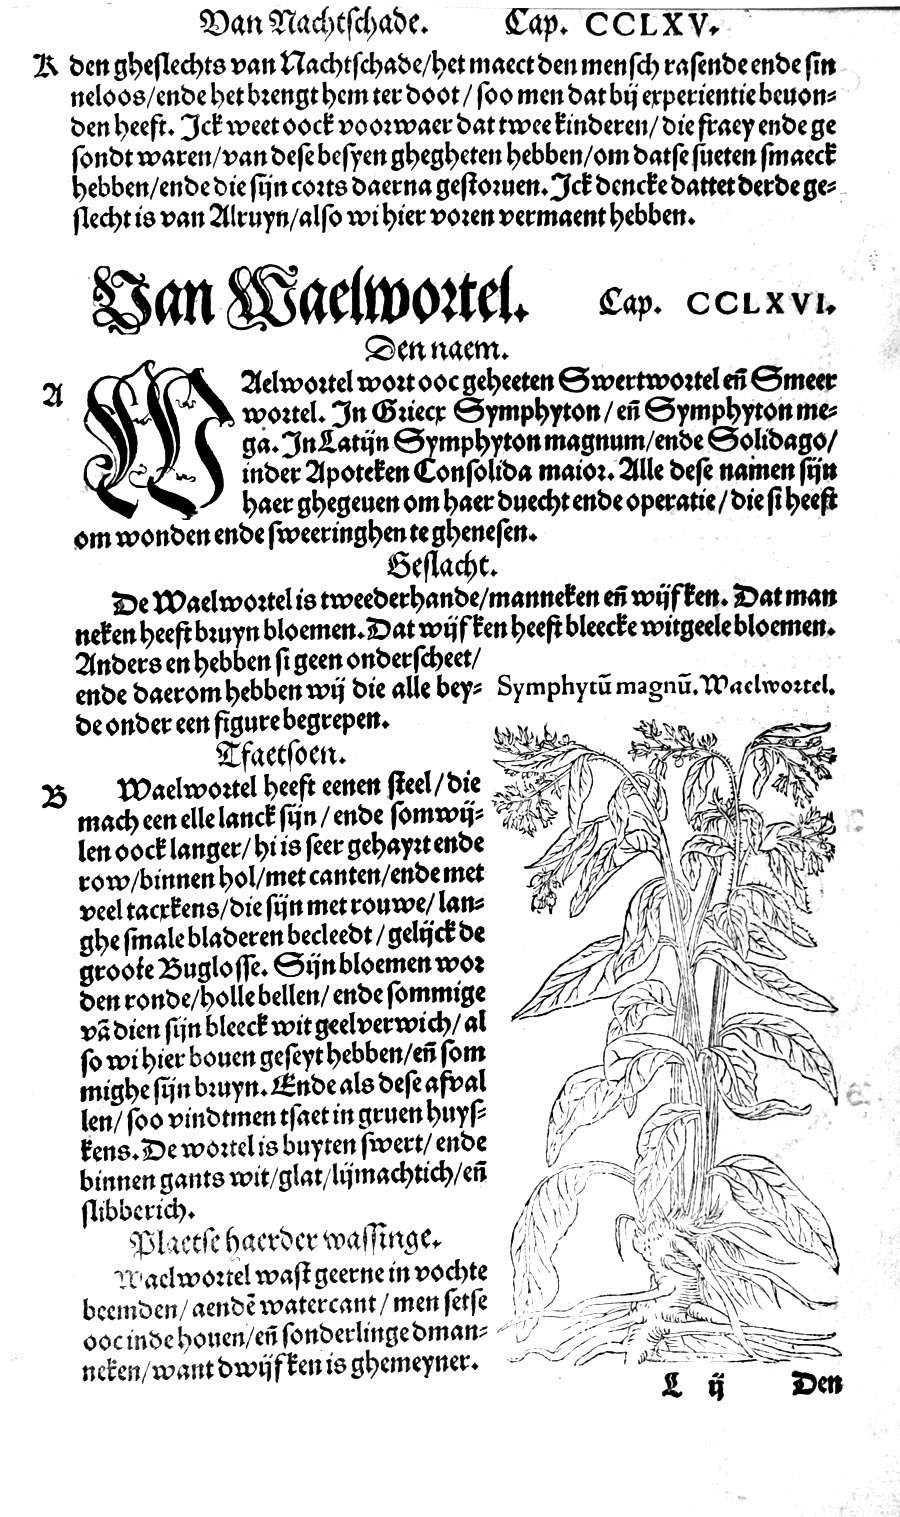 Van Nachtschade. Cap. CCLXV.
K den gheslechts van Nachtschade/het maect den mensch rasende ende sin
neloos/ende het brengt hem ter doot/soo men dat bij experientie beuon⸗
den heeft. Jck weet oock voorwaer dat twee kinderen/die fraey ende ge
sondt waren/van dese besyen ghegheten hebben/om datse sueten smaeck
hebben/ende die sijn corts daerna gestoruen. Jck dencke dattet derde ge⸗
slecht is van Alruyn/also wi hier voren vermaent hebben.
Van Waelwortel. Cap. CCLXVI.
Den naem.
A WAelwortel wort ooc geheeten Swertwortel eñ Smeer
wortel. Jn Griecx Symphyton/eñ Symphyton me⸗
ga. Jn Latijn Symphyton magnum/ende Solidago/
inder Apoteken Consolida maior. Alle dese namen sijn
haer ghegeuen om haer duecht ende operatie/die si heeft
om wonden ende sweeringhen te ghenesen.
Geslacht.
De Waelwortel is tweederhande/manneken eñ wijfken. Dat man
neken heeft bruyn bloemen. Dat wijfken heeft bleecke witgeele bloemen.
Anders en hebben si geen onderscheet/
ende daerom hebben wij die alle bey⸗
de onder een figure begrepen.
Symphytū magnū. Waelwortel.
Tfaetsoen.
B Waelwortel heeft eenen steel/die
mach een elle lanck sijn/ende somwij⸗
len oock langer/hi is seer gehayrt ende
row/binnen hol/met canten/ende met
veel tacxkens/die sijn met rouwe/lan⸗
ghe smale bladeren becleedt/gelijck de
groote Buglosse. Sijn bloemen wor
den ronde/holle bellen/ende sommige
vā dien sijn bleeck wit geel verwich/al
so wi hier bouen geseyt hebben/eñ som
mighe sijn bruyn. Ende als dese afval
len/soo vindtmen tsaet in gruen huys⸗
kens. De wortel is buyten swert/ende
binnen gants wit/glat/lijmachtich/eñ
slibberich.
Plaetse haerder wassinge.
Waelwortel wast geerne in vochte
beemden/aendē watercant/men setse
ooc inde houen/eñ sonderlinge dman⸗
neken/want dwijfken is ghemeyner.
L ij Den